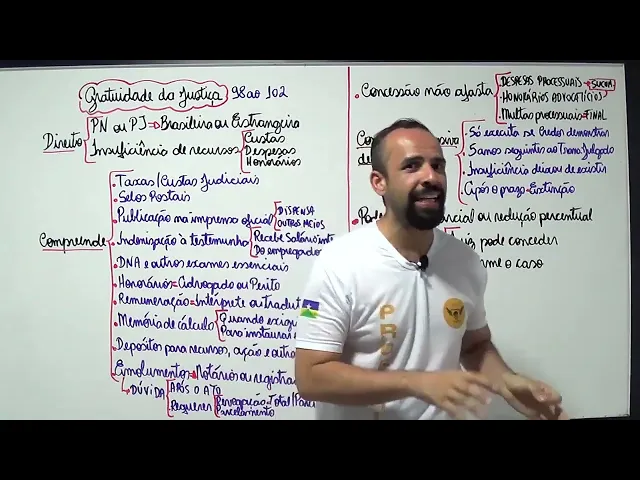 Gratuidade da Justiça 98 ao 102
Direito
PN ou PJ → Brasileira ou Estrangeira
Insuficiência de recursos
Custas
Despesas
Honorários
Compreende
• Taxas/Custas Judiciais
• Selos Postais
• Publicação na imprensa oficial
DISPENSA
OUTROS MEIOS
• Indenização à testemunha
Recebe Salário
Do empregador
• DNA e outros exames essenciais
• Honorários = Advogado ou Perito
• Remuneração = Intérprete ou
• Memória de cálculo
Quando
Para
• Depósitos para recursos, ação e
Emolumentos → Notários ou
DÚVIDA
APÓS O ATO
Requerer
Revogação = Total/
Parcelamento
• Concessão não afasta
• DESPESAS PROCESSUAIS → SUCUM
• HONORÁRIOS ADVOCATÍCIOS
• Multas processuais = FINAL
• Só executa se Credor demonstrar
• 5 anos seguintes ao Trans. Julgado
• Insuficiência deixou de existir
• Após o prazo = Extinção
ou redução percentual
pode conceder
o caso
PRO